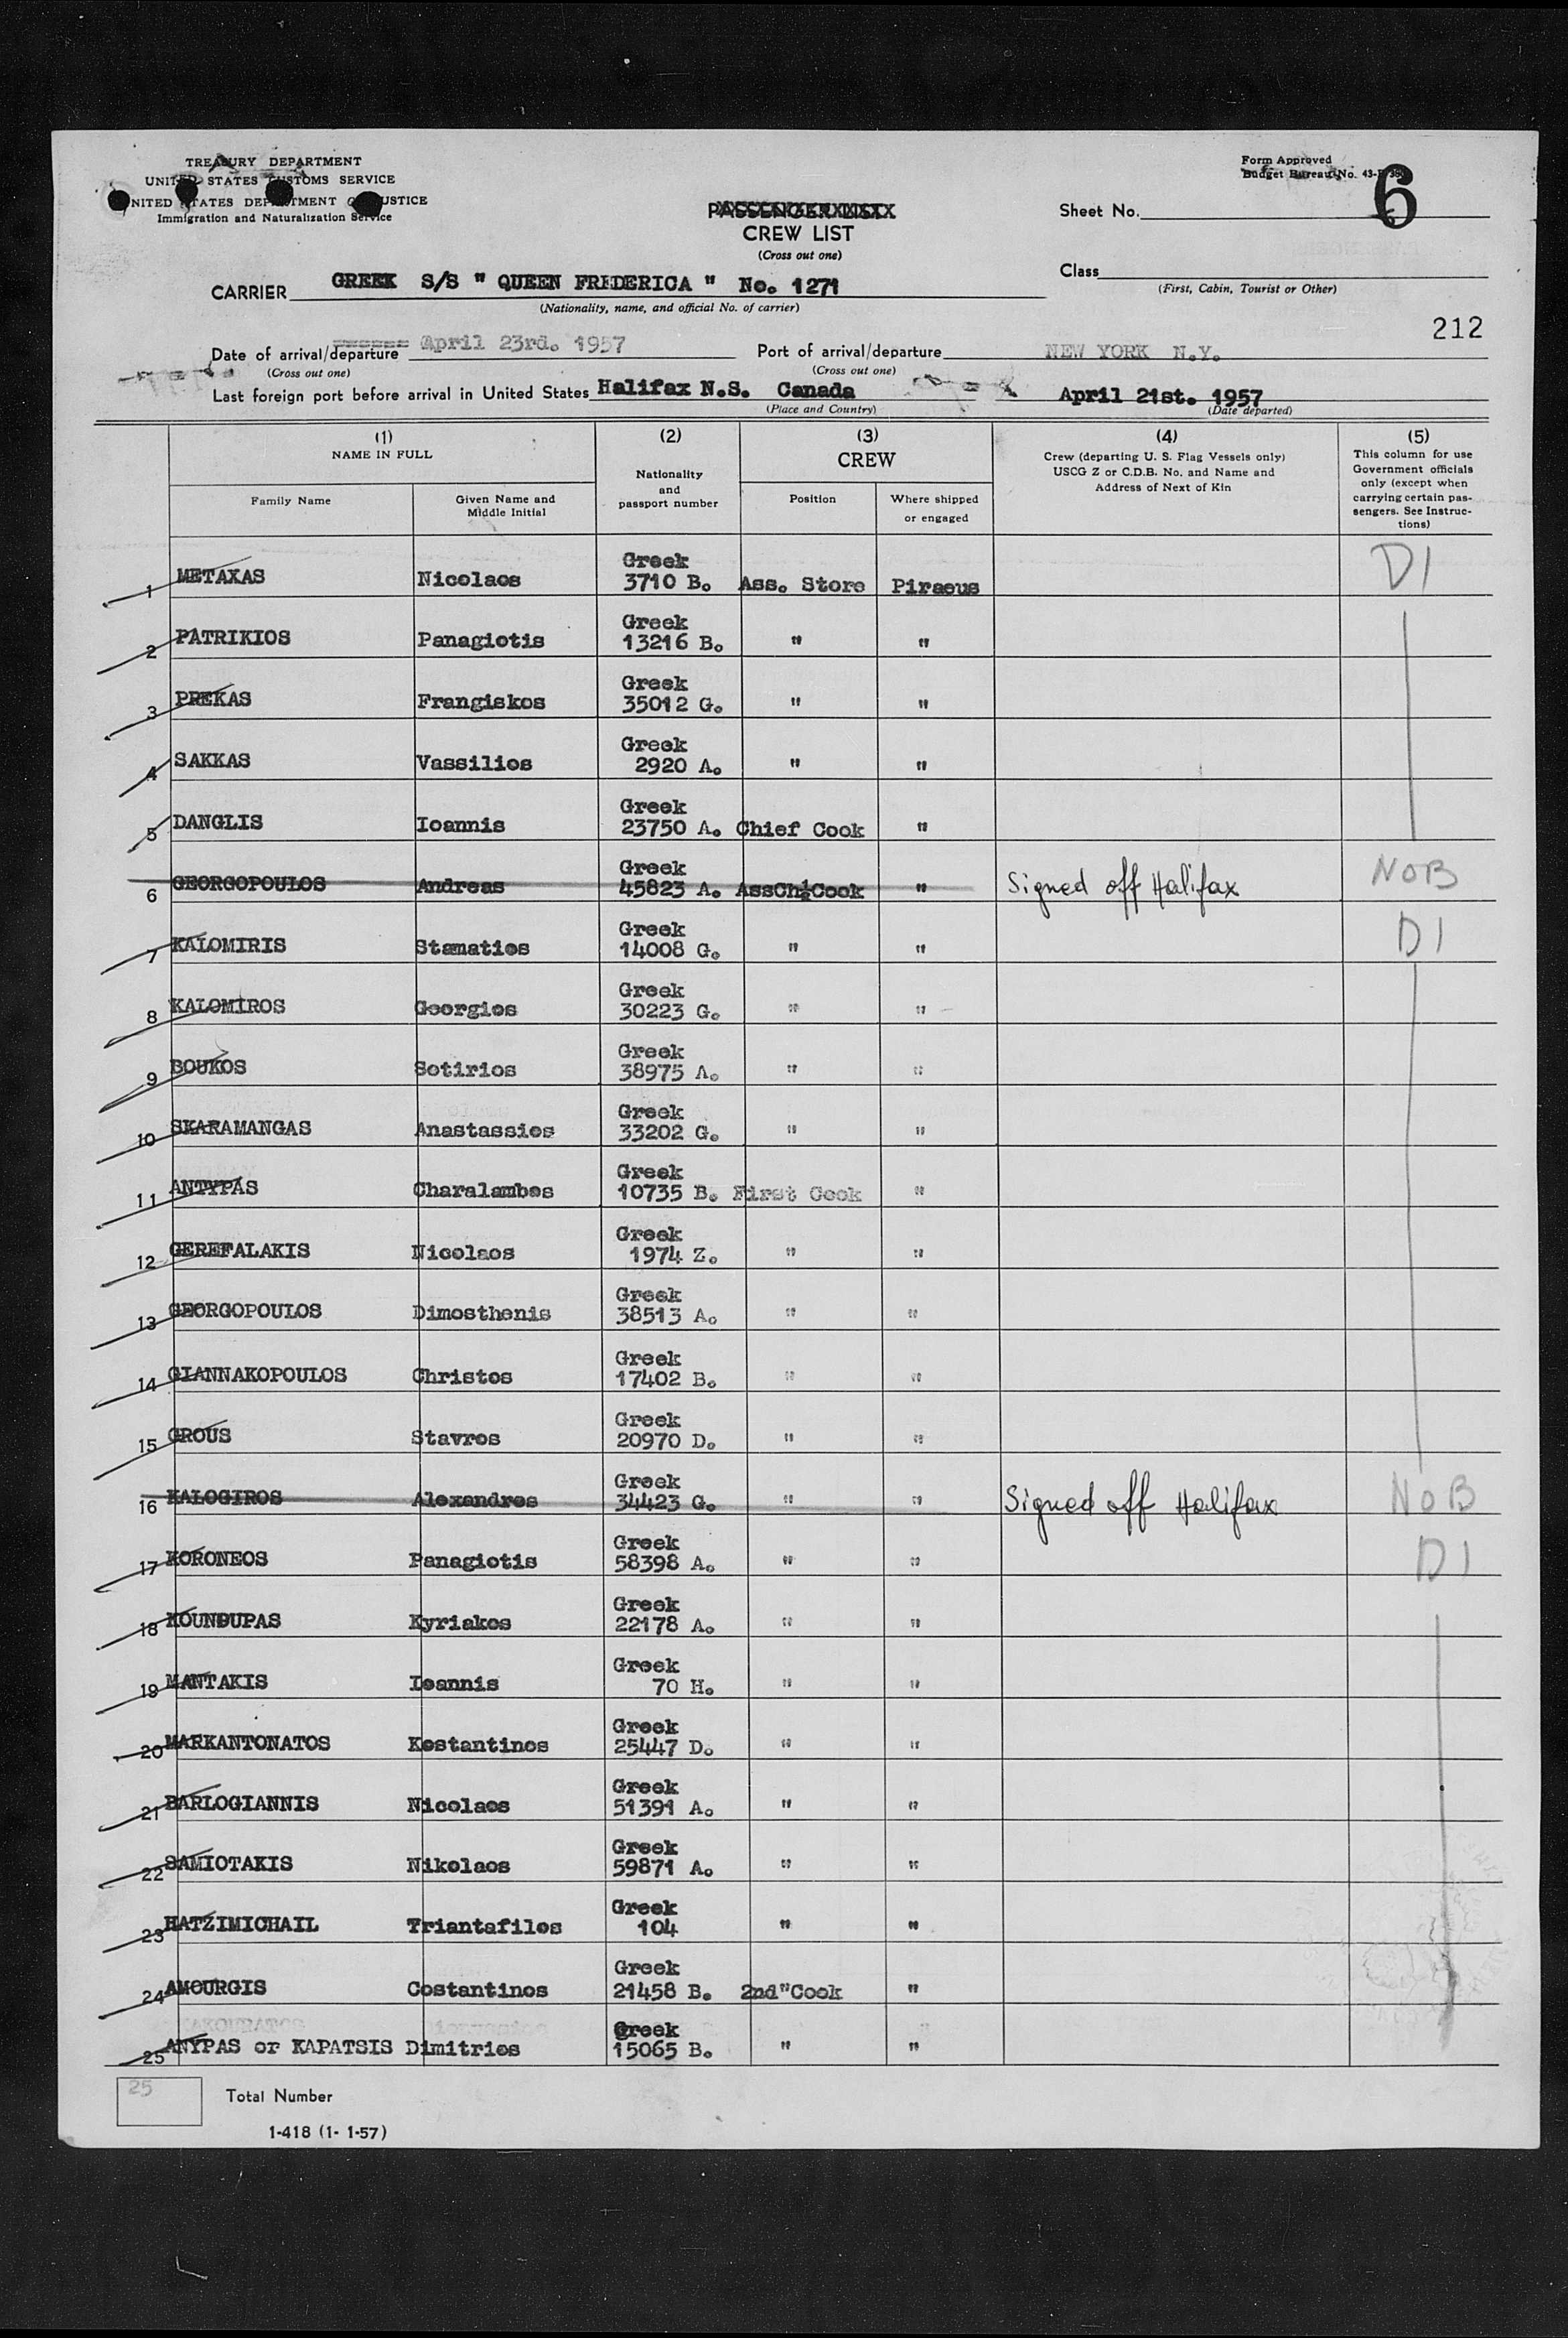 TREASURY DEPARTMENT
UNITED STATES CUSTOMS SERVICE
UNITED STATES DEPARTMENT OF JUSTICE
Immigration and Naturalization Service
Form Approved
Budget Bureau No. 43-
6
PASSENGER LIST
CREW LIST
(Cross out one)
Sheet No.
CARRIER GREEK S/S " QUEEN FREDERICA " No. 1271
(Nationality, name, and official No. of carrier)
Class
(First, Cabin, Tourist or Other)
212
Date of arrival/departure April 23rd. 1957 Port of arrival/departure NEW YORK N.Y.
(Cross out one) (Cross out one)
Last foreign port before arrival in United States Halifax N.S. Canada April 21st. 1957
(Place and Country) (Date departed)
(1) (2) (3) (4) (5)
NAME IN FULL
Family Name
Given Name and
Middle Initial
Nationality
and
passport number
CREW
Position
Where shipped
or engaged
Crew (departing U. S. Flag Vessels only)
USCG Z or C.D.B. No. and Name and
Address of Next of Kin
This column for use
Government officials
only (except when
carrying certain pas-
sengers. See Instruc-
tions)
Greek
1 METAXAS Nicolaos 3710 B. Ass. Store Piraeus D1
Greek
2 PATRIKIOS Panagiotis 13216 B. " "
Greek
3 PREKAS Frangiskos 35012 G. " "
Greek
4 SAKKAS Vassilios 2920 A. " "
Greek
5 DANGLIS Ioannis 23750 A. Chief Cook "
Greek
6 GEORGOPOULOS Andreas 45823 A. AssChi Cook " Signed off Halifax NOB
Greek
7 KALOMIRIS Stamatios 14008 G. " " D1
Greek
8 KALOMIROS Georgios 30223 G. " "
Greek
9 BOUKOS Sotirios 38975 A. " "
Greek
10 SKARAMANGAS Anastassios 33202 G. " "
Greek
11 ANTYPAS Charalambos 10735 B. First Cook "
Greek
12 GEREFALAKIS Nicolaos 1974 Z. " "
Greek
13 GEORGOPOULOS Dimosthenis 38513 A. " "
Greek
14 GIANNAKOPOULOS Christos 17402 B. " "
Greek
15 GROUS Stavros 20970 D. " "
Greek
16 KALOGIROS Alexandros 34423 G. " " Signed off Halifax NOB
Greek
17 KORONEOS Panagiotis 58398 A. " " D1
Greek
18 KOUNDUPAS Kyriakos 22178 A. " "
Greek
19 MANTAKIS Ioannis 70 H. " "
Greek
20 MARKANTONATOS Kostantinos 25447 D. " "
Greek
21 BARLOGIANNIS Nicolaos 51391 A. " "
Greek
22 SAMIOTAKIS Nikolaos 59871 A. " "
Greek
23 HATZIMICHAIL Triantafilos 104 " "
Greek
24 AMOURGIS Costantinos 21458 B. 2nd"Cook "
Greek
25 ANYPAS or KAPATSIS Dimitrios 15065 B. " "
25 Total Number
1-418 (1- 1-57)